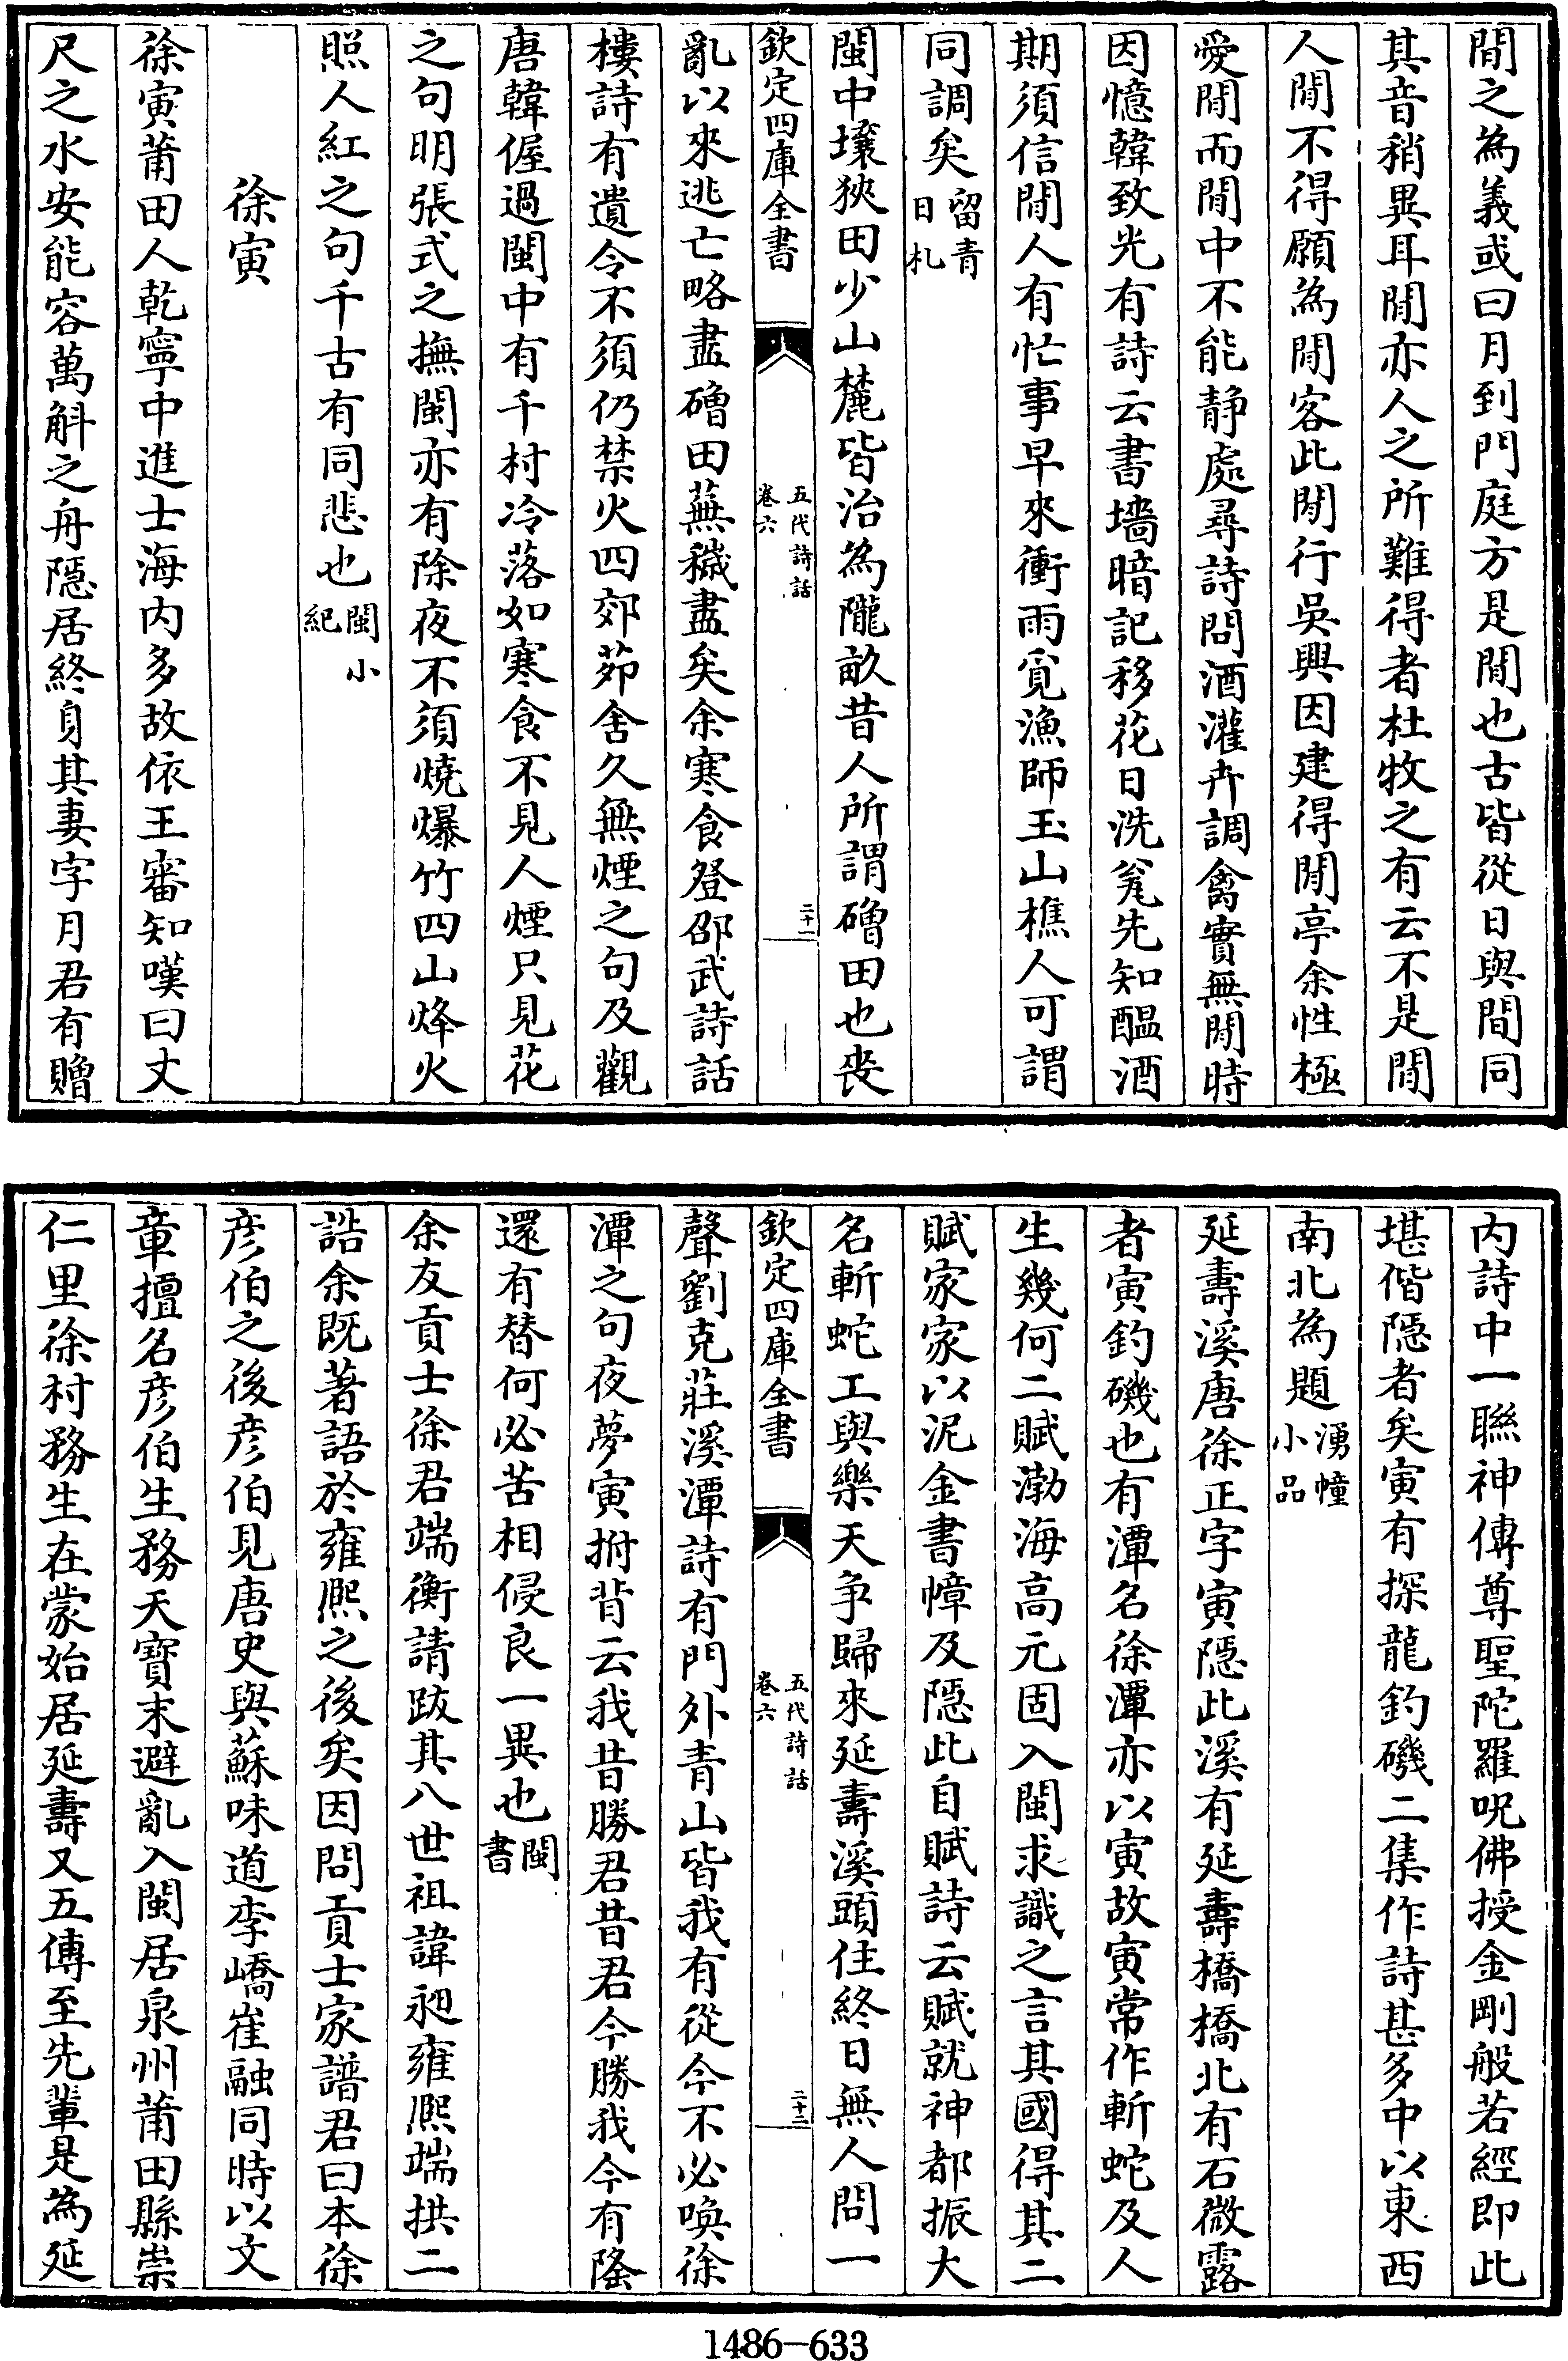 閒之為義或曰月到門庭方是閒也古皆從日與間同
其音稍異耳閒亦人之所難得者杜牧之有云不是閒
人閒不得願為閒客此閒行吳興因建得閒亭余性極
愛閒而閒中不能靜處尋詩問酒灌卉調禽實無閒時
因憶韓致光有詩云書墻暗記移花日洗瓮先知醖酒
期須信閒人有忙事早來衝雨覓漁師玉山樵人可謂
同調矣留青日札
閩中壤狹田少山麓皆治為隴畝昔人所謂磳田也喪
欽定四庫全書
五代詩話
卷六
二十一
亂以來逃亡略盡磳田蕪穢盡矣余寒食登邵武詩話
樓詩有遺令不須仍禁火四郊茆舍久無煙之句及觀
唐韓偓過閩中有千村冷落如寒食不見人煙只見花
之句明張式之撫閩亦有除夜不須燒爆竹四山烽火
照人紅之句千古有同悲也閩小紀
徐寅
徐寅莆田人乾寧中進士海內多故依王審知嘆曰丈
尺之水安能容萬斛之舟隱居終身其妻字月君有贈
內詩中一聯神傳尊聖陀羅呪佛授金剛般若經即此
堪偕隱者矣寅有探龍釣磯二集作詩甚多中以東西
南北為題湧幢小品
延壽溪唐徐正字寅隱此溪有延壽橋橋北有石微露
者寅釣磯也有潭名徐潭亦以寅故寅常作斬蛇及人
生幾何二賦渤海高元固入閩求識之言其國得其二
賦家家以泥金書幛及隱此自賦詩云賦就神都振大
名斬蛇工與樂天爭歸來延壽溪頭住終日無人問一
欽定四庫全書
五代詩話
卷六
二十二
聲劉克莊溪潭詩有門外青山皆我有從今不必喚徐
潭之句夜夢寅拊背云我昔勝君昔君今勝我今有隆
還有替何必苦相侵良一異也閩書
余友貢士徐君端衡請跋其八世祖諱昶雍熙端拱二
誥余既著語於雍熙之後矣因問貢士家譜君曰本徐
彥伯之後彥伯見唐史與蘇味道李嶠崔融同時以文
章擅名彥伯生務天寶末避亂入閩居泉州莆田縣崇
仁里徐村務生在蒙始居延壽又五傳至先輩是為延
1486-633